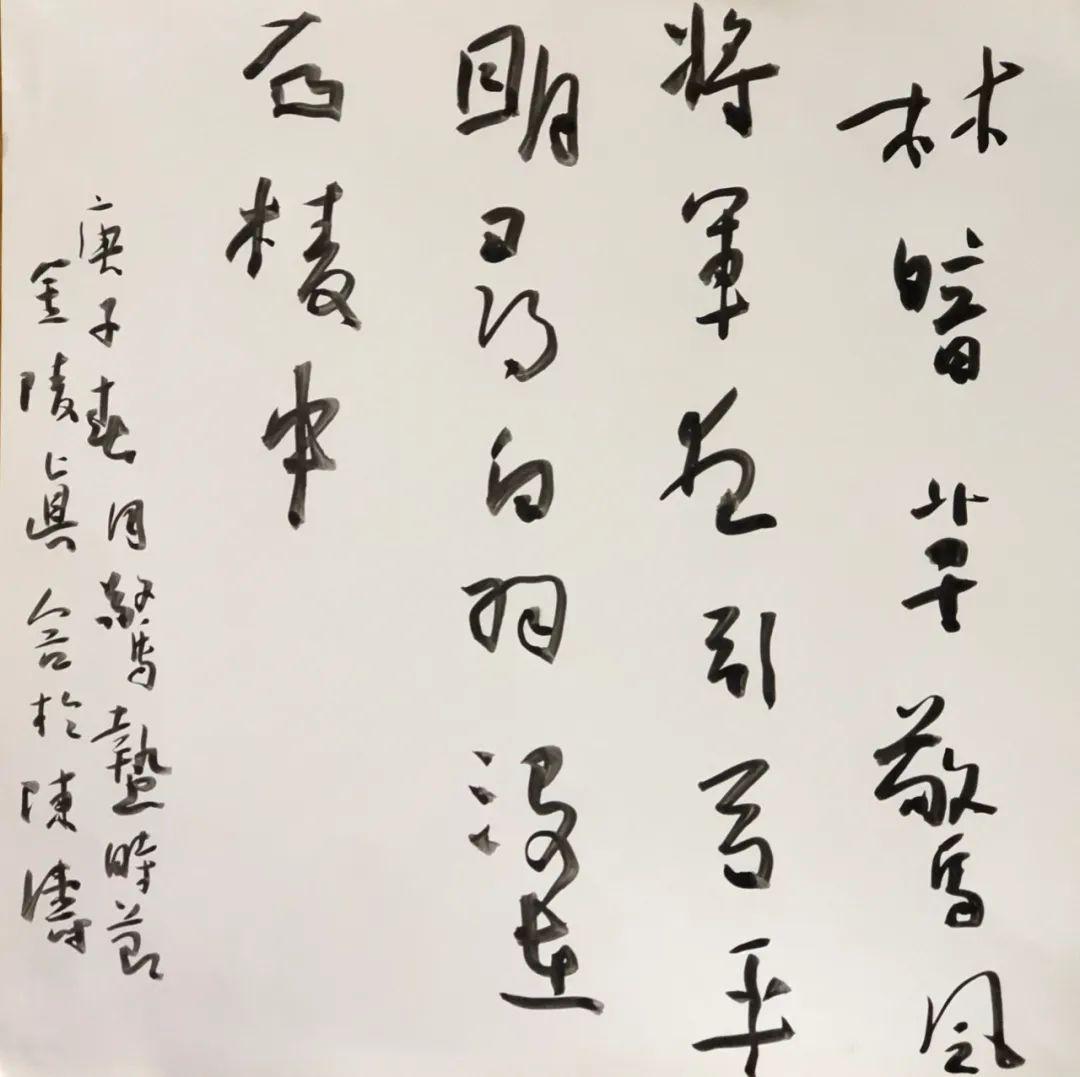 林暗草驚風
將軍夜引弓平
明尋白羽沒在
石棱中
庚子春月驚蟄時節
金陵真合於陳濤